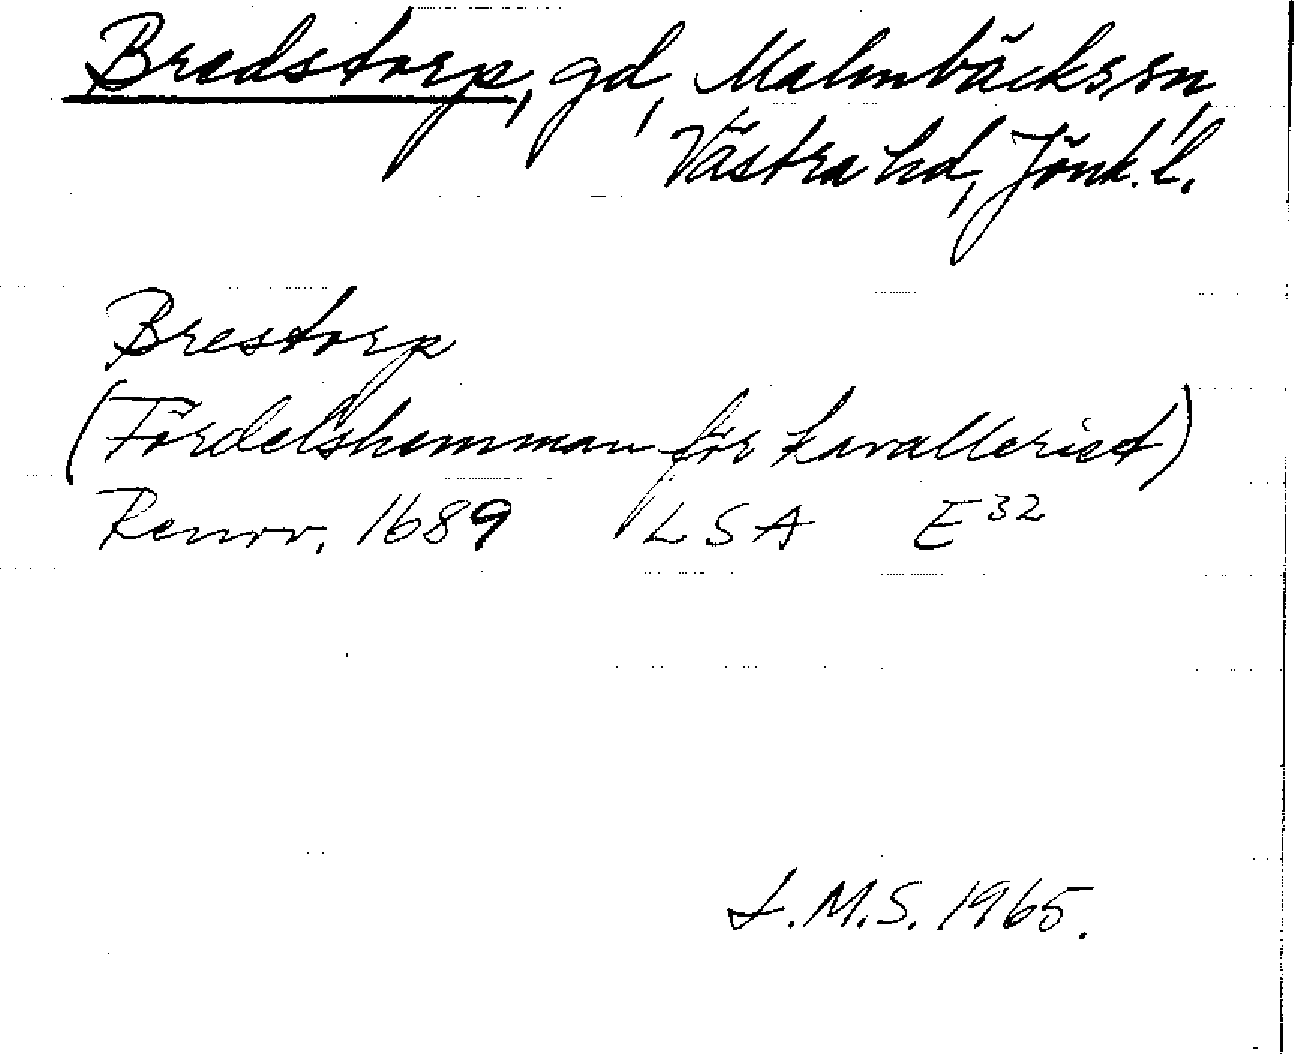 Bredstorp, gd, Malmbäcks sn,
Västra hd, Jönk. l.
Brestorp
(Fördelshemman för kavalleriet)
Renov. 1689 LSA E³²
L.M.S. 1965.